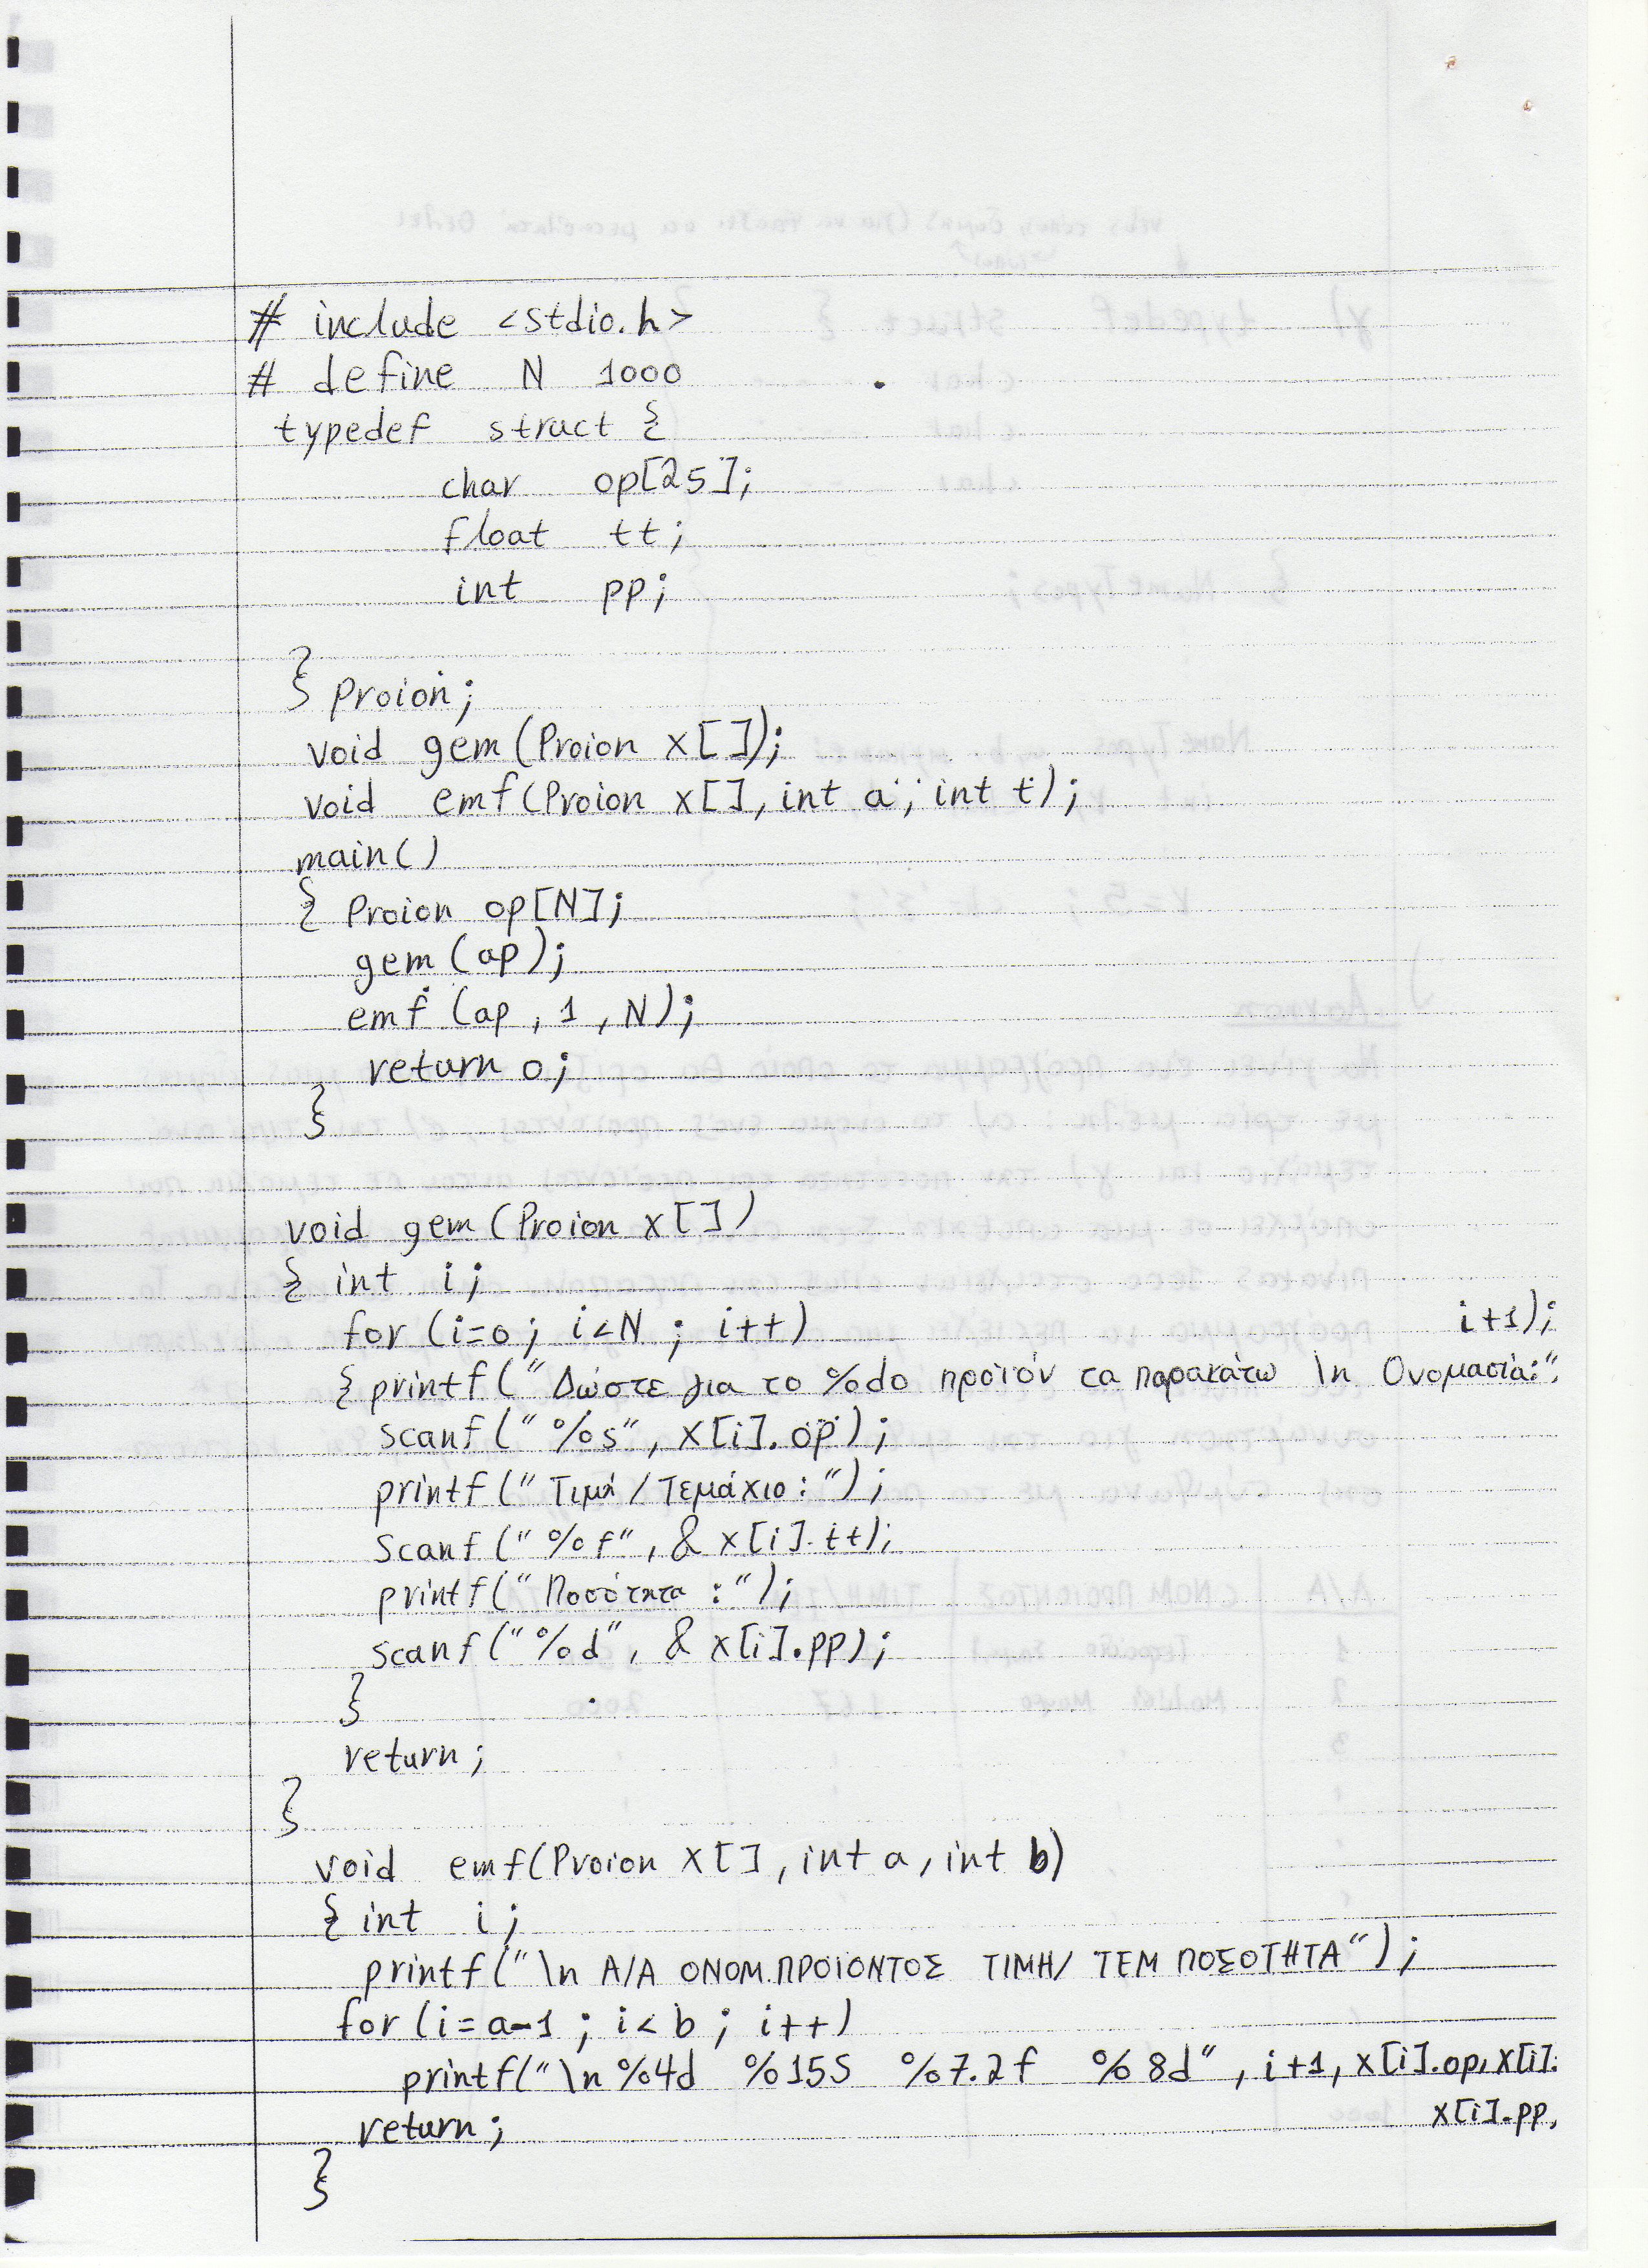 # include <stdio.h>
# define N 1000
typedef struct {
char op[25];
float tt;
int pp;
} Proion;
void gem (Proion x[]);
void emf(Proion x[], int a, int t);
main()
{ Proion op[N];
gem (ap);
emf (ap, 1, N);
return 0;
}
void gem (Proion x[])
{ int i;
for (i=0; i<N; i++)
i+1);
{ printf("Δώστε για το %dο προϊόν τα παρακάτω \n Ονομασία:",
scanf("%s", x[i].op);
printf("Τιμή/Τεμάχιο:");
scanf("%f", & x[i].tt);
printf("Ποσότητα :");
scanf("%d", & x[i].pp);
}
return;
}
void emf(Proion x[], int a, int b)
{ int i;
printf("\n A/A ΟΝΟΜ.ΠΡΟΪΟΝΤΟΣ ΤΙΜΗ/ ΤΕΜ ΠΟΣΟΤΗΤΑ");
for (i=a-1; i<b; i++)
printf("\n %4d %15s %7.2f %8d", i+1, x[i].op, x[i].
x[i].pp,
return;
}